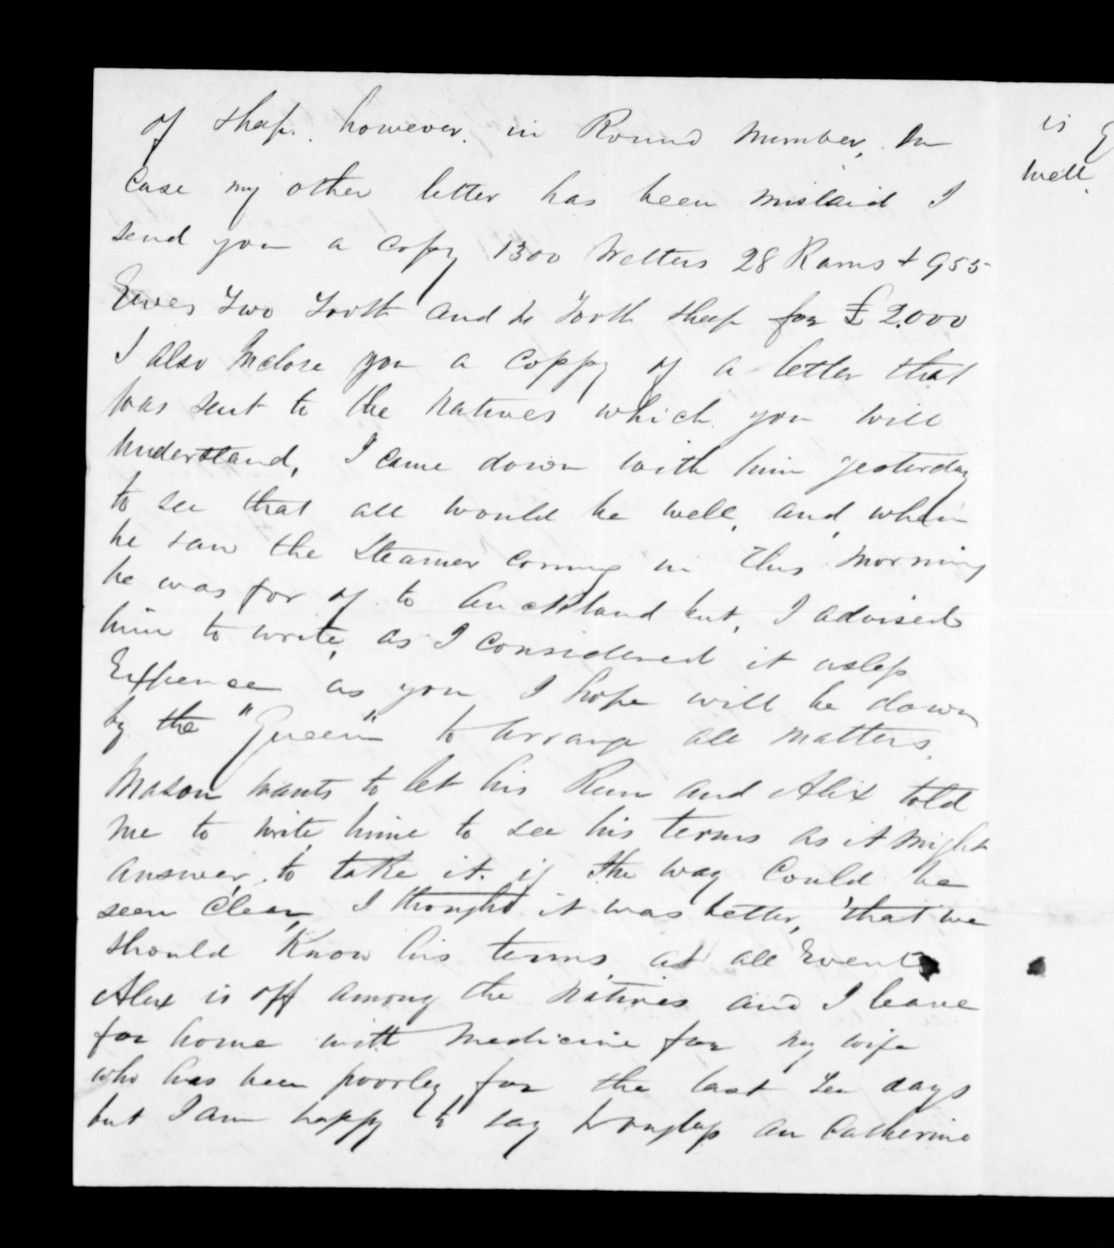 of sheep. however. in Round Number, In
Case my other letter has been mislaid I
send you a copy 1300 Wetters 28 Rams + 955
Ewes Two Tooth and Tooth sheep for £2.000
I also Inclose you a coppy of a letter that
was sent to the Natives which you will
understand, I came down with him yesterday
to see that all would be well, and when
he saw the Steamer coming in this morning
he was for of to Auckland but, I advised
him to write, as I considered it usless
Expence as you I hope will be down
by the "Queen" to arrange all matters,
Mason wants to let his Run and Alix told
me to write hime to see his terms as it might
answer to take it. if the way could be
seen clear, I thought it was better, that we
should Know his terms, at all Events
Alix is off among the Natives and I leave
for home with Medicine for my wife
who has been poorley for the last ten days
but I am happy to say Douglass an Catherine
is
well.